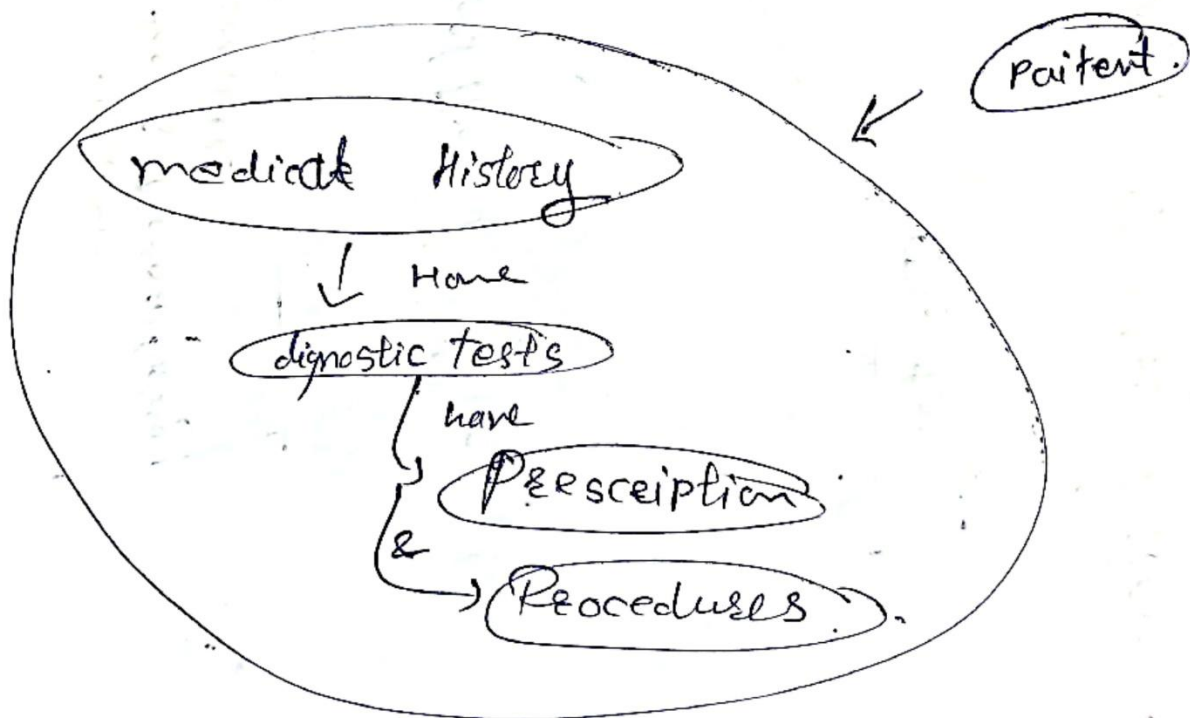 Paitent.
medicak History
Have
dignostic tests
have
Presciption
&
Procedures.